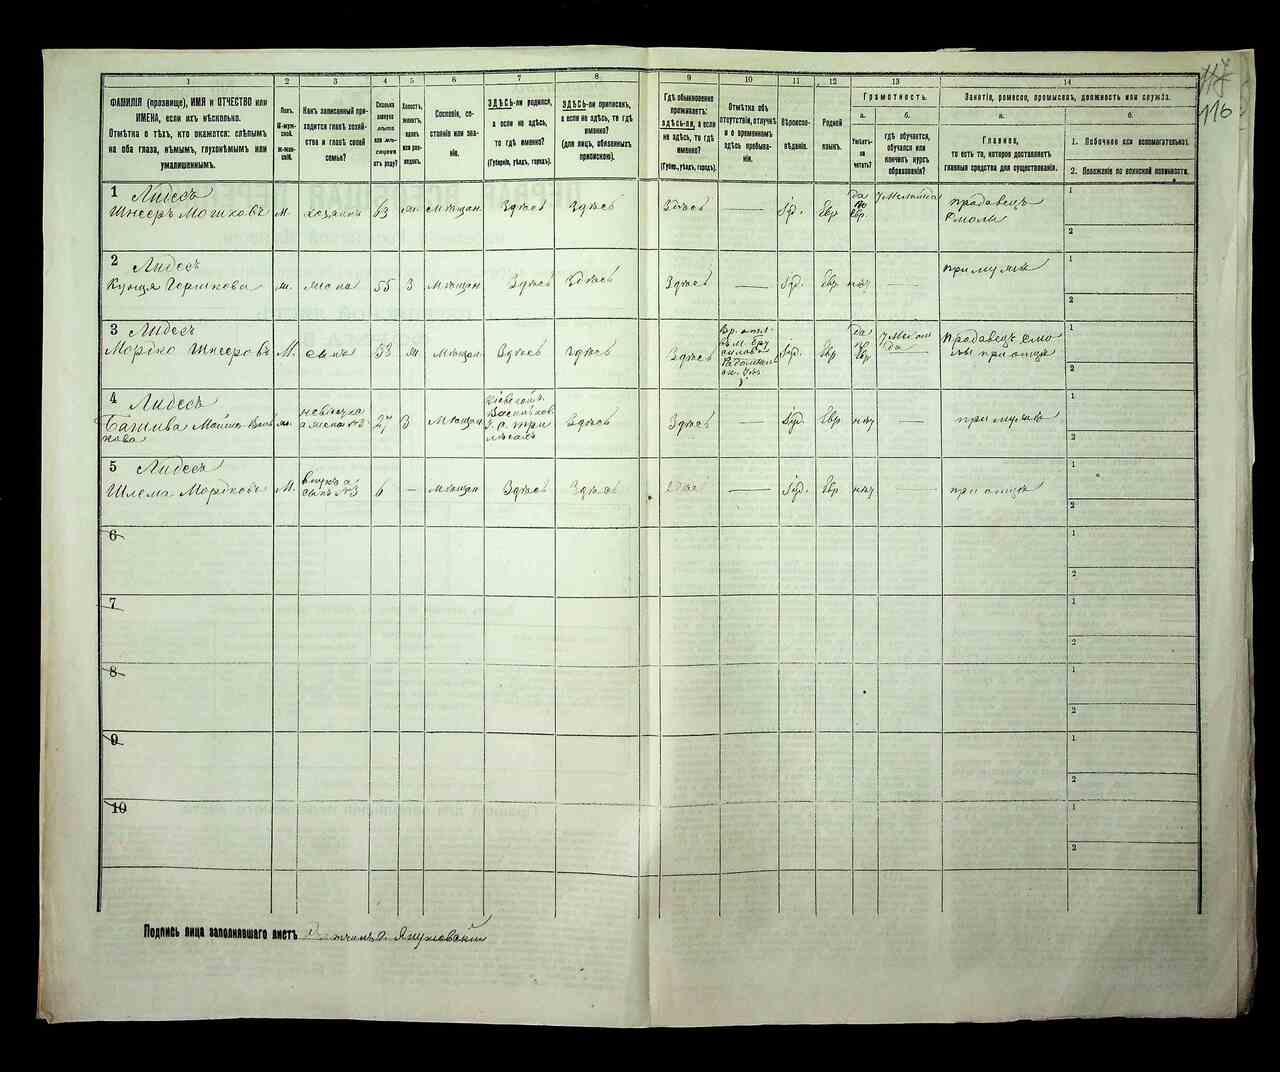 117
116
1 2 3 4 5 6 7 8 9 10 11 12 13 14
ФАМИЛІЯ (прозвище), ИМЯ и ОТЧЕСТВО или
ИМЕНА, если ихъ нѣсколько.
Отмѣтка о тѣхъ, кто окажется: слѣпымъ
на оба глаза, нѣмымъ, глухонѣмымъ или
умалишеннымъ.
Полъ.
Какъ записанный при-
ходится главѣ хозяй-
ства и главѣ своей
семьи?
Сколько
минуло
лѣтъ
или мѣ-
сяцевъ
отъ роду?
Холостъ,
женатъ,
вдовъ
или раз-
веденъ.
Сословіе, со-
стояніе или зва-
ніе.
ЗДѢСЬ-ли родился,
а если не здѣсь,
то гдѣ именно?
(Губернія, уѣздъ, городъ).
ЗДѢСЬ-ли приписанъ,
а если не здѣсь, то гдѣ
именно?
(для лицъ, обязанныхъ
припиской).
Гдѣ обыкновенно
проживаетъ:
здѣсь-ли, а если
не здѣсь, то гдѣ
именно?
(Губерн., уѣздъ, городъ).
Отмѣтка объ
отсутствіи, отлучкѣ
и о временномъ
здѣсь пребыва-
ніи.
Вѣроиспо-
вѣданіе.
Родной
языкъ.
Грамотность.
а. б.
Умѣетъ-
ли
читать?
гдѣ обучается,
обучался или
кончилъ курсъ
образованія?
Занятіе, ремесло, промыселъ, должность или служба.
а. б.
Главное,
то есть то, которое доставляетъ
главныя средства для существованія.
1. Побочное или вспомогательное.
2. Положеніе по воинской повинности.
1 Лидесъ
Шнееръ М. хозяинъ 63 ж мѣщан Здѣсь Здѣсь Здѣсь — Іуд. Евр да по Евр. У Меламеда продавецъ смолы
1
2
2 Лидесъ
ж. жена 55 З мѣщан Здѣсь Здѣсь Здѣсь — Іуд. Евр нѣт — при мужѣ
1
2
3 Лидесъ
Мордко Шнееровъ М. сынъ 33 ж мѣщан Здѣсь Здѣсь Здѣсь Іуд. Евр да Евр продавецъ смо
лы при отцѣ
1
2
4 Лидесъ
ж. невѣстка
а жена №3 27 З мѣщан Кіевской г.
Васильков.
Здѣсь Здѣсь — Іуд. Евр нѣт — при мужѣ
1
2
5 Лидесъ
Шлема Мордковъ М. внукъ а
сынъ №3 6 — мѣщан Здѣсь Здѣсь Здѣсь — Іуд. Евр нѣт — при отцѣ
1
2
6
1
2
7
1
2
8
1
2
9
1
2
10
1
2
Подпись лица заполнявшаго листъ